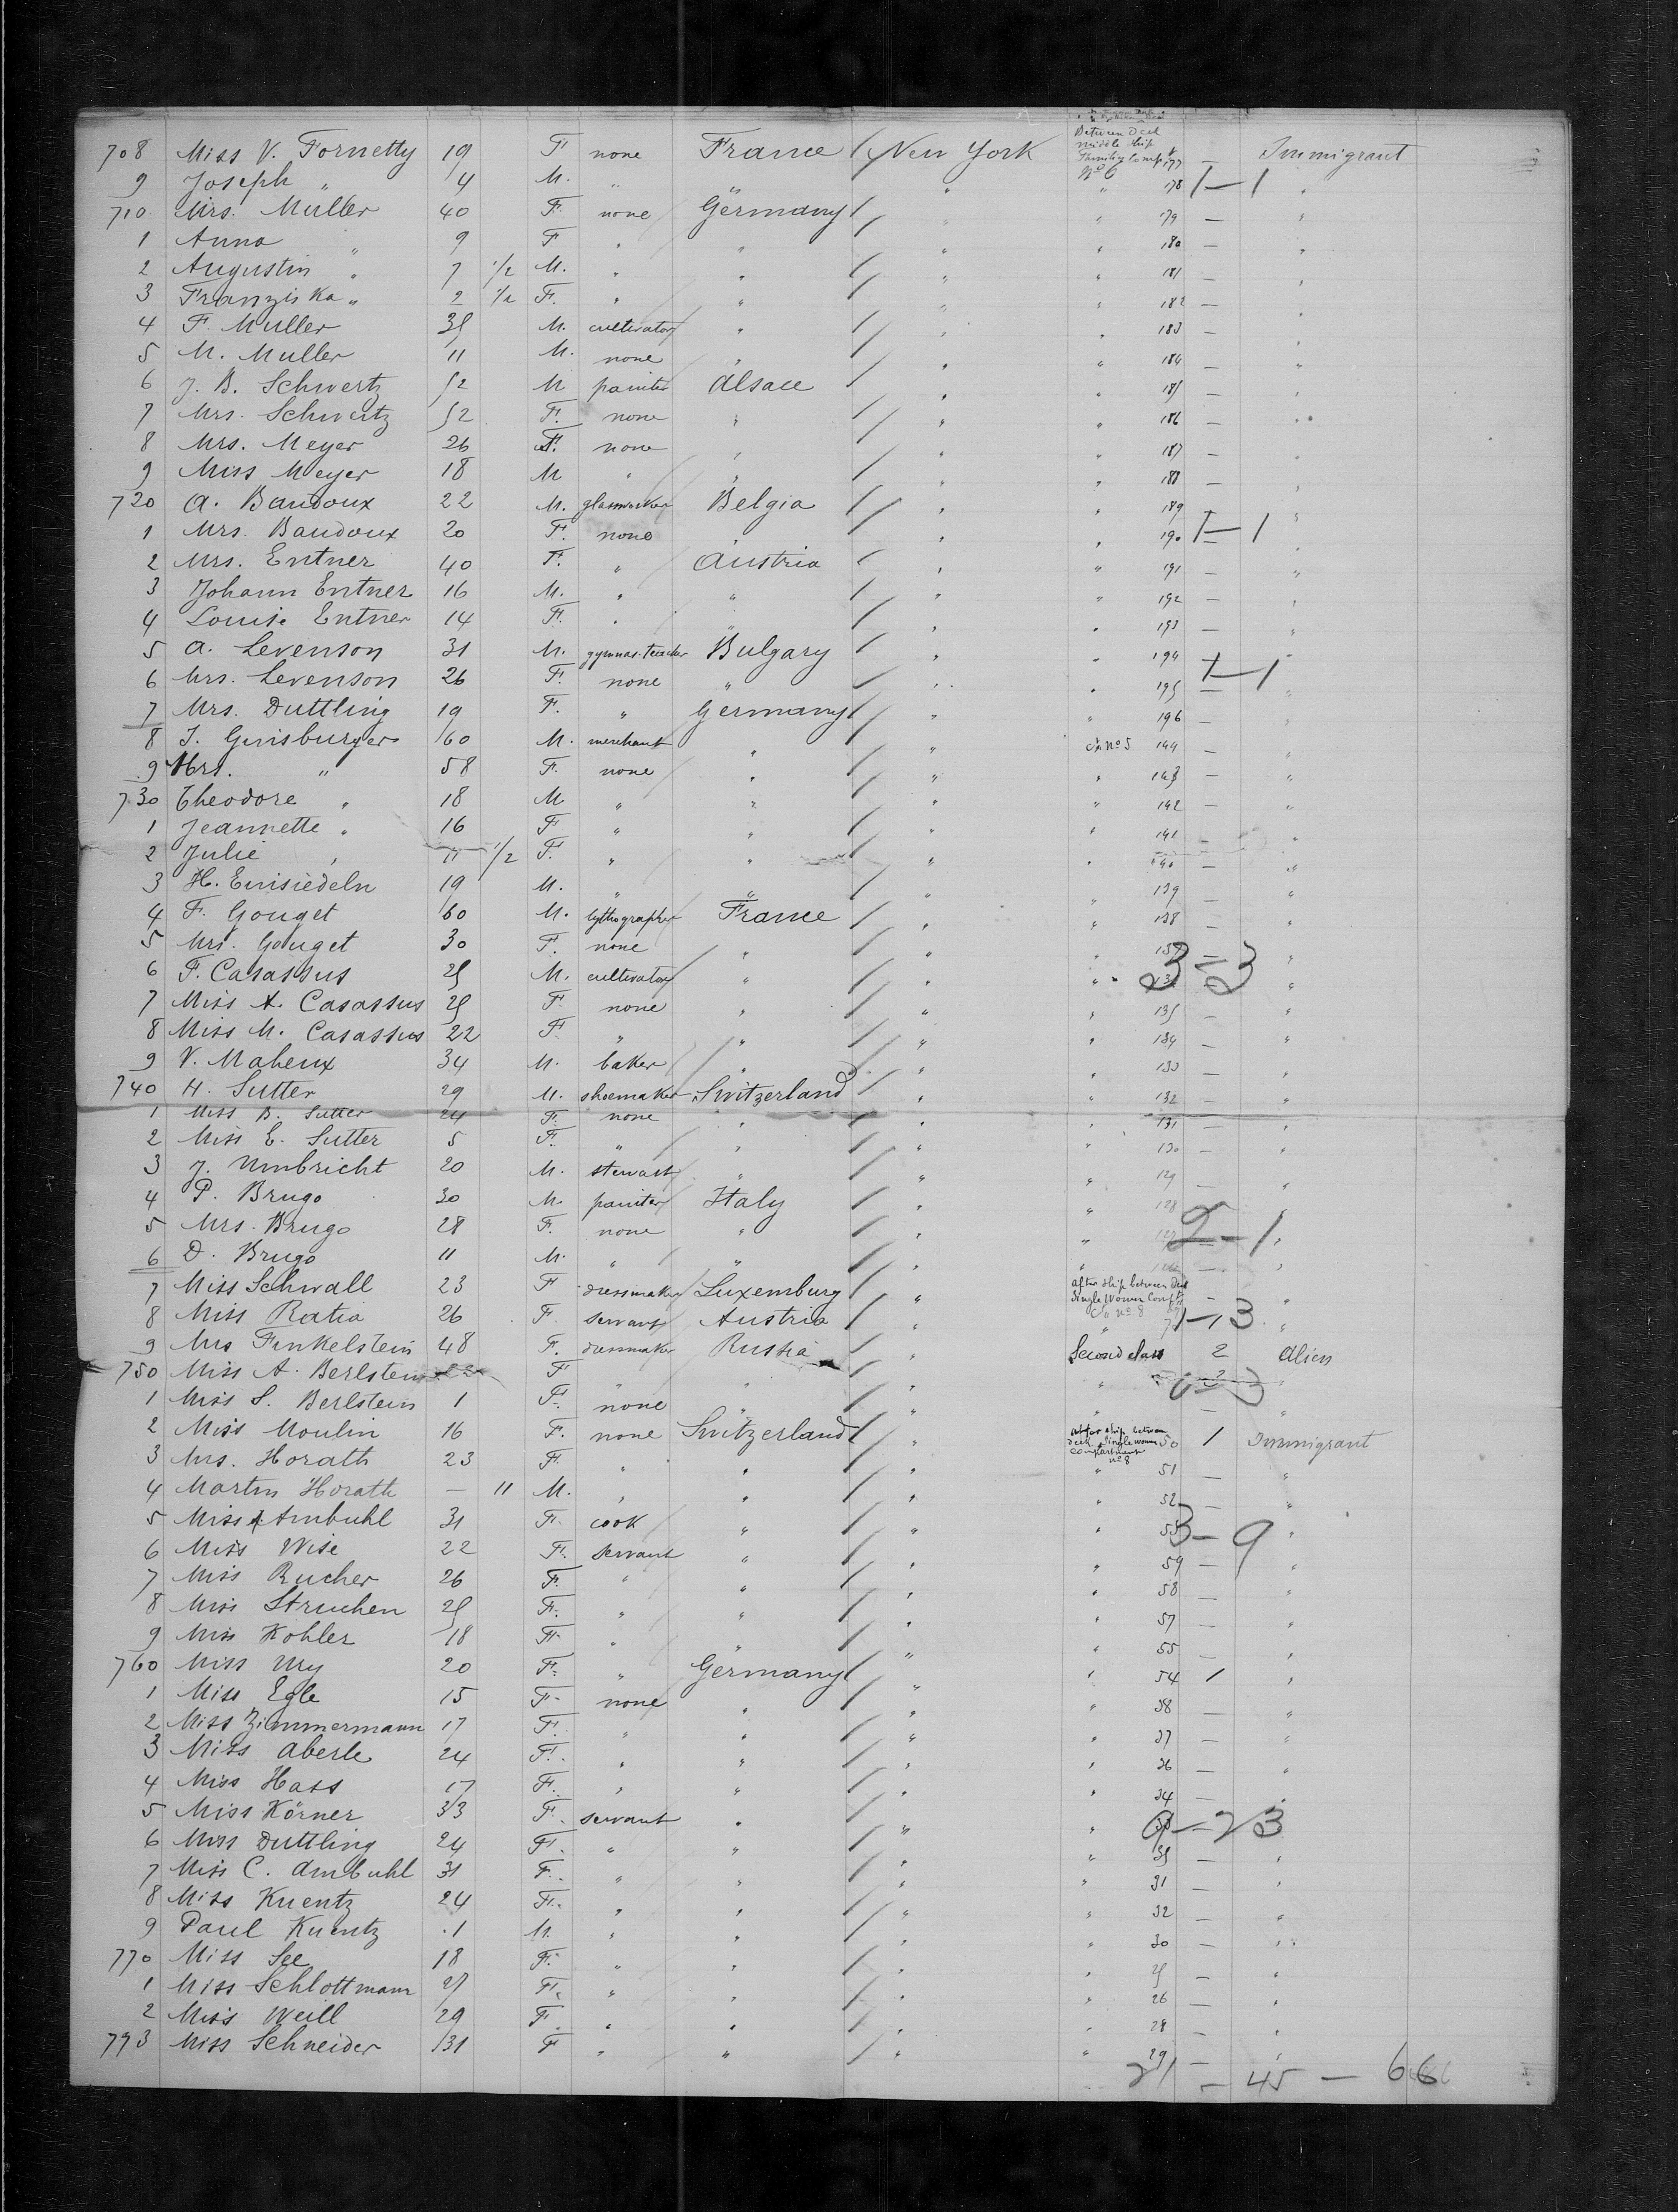 Between Deck
middle ship
Family Compt
No 6
708 Miss V. Fornetty 19 F none France / New York 177 — Immigrant
9 Joseph " 4 M. " " " " 178 1—1 "
710 Mrs. Muller 40 F. none Germany / " " 179 — "
1 Anna " 9 F " " / " " 180 — "
2 Augustin " 7 1/2 M. " " / " " 181 — "
3 Franziska " 2 1/2 F. " " / " " 182 — "
4 F. Muller 35 M. cultivator " / " " 183 — "
5 M. Muller 11 M. none " / " " 184 — "
6 J. B. Schwertz 52 M painter Alsace / " " 185 — "
7 Mrs. Schwertz 52 F. none " / " " 186 — "
8 Mrs. Meyer 26 F. none " / " " 187 — "
9 Miss Meyer 18 M " " / " " 188 — "
720 A. Baudoux 22 M. glassworker Belgia / " " 189 "
1 Mrs. Baudoux 20 F. none / " " 190 1—1 "
2 Mrs. Entner 40 F. " Austria / " " 191 — "
3 Johann Entner 16 M. " " / " " 192 — "
4 Louise Entner 14 F. " " / " " 193 — "
5 A. Levenson 31 M. gymnas. teacher Bulgary / " " 194 "
6 Mrs. Levenson 26 F. none " / " " 195 1—1 "
7 Mrs. Duttling 19 F. " Germany / " " 196 — "
8 J. Ginsburger 60 M. merchant " / " No 5 144 — "
9 Mrs. " 58 F. none " / " " 143 — "
730 Theodore " 18 M " " / " " 142 — "
1 Jeannette " 16 F " " / " " 141 — "
2 Julie " 11 1/2 F. " " / " " 140 — "
3 H. Einsiedeln 19 M. " " / " " 139 — "
4 F. Gouget 60 M. lythographer France / " " 138 — "
5 Mrs. Gouget 30 F. none " / " " 137 "
6 F. Casassus 25 M. cultivator " / " " 3—3 "
7 Miss A. Casassus 25 F none " / " " 135 — "
8 Miss M. Casassus 22 F " " / " " 134 — "
9 V. Maheux 34 M. baker " / " " 133 — "
740 H. Sutter 29 M. shoemaker Switzerland / " " 132 — "
1 Miss B. Sutter 24 F. none " / " " 131 — "
2 Miss E. Sutter 5 F. " " / " " 130 — "
3 J. Umbricht 20 M. steward " / " " 129 — "
4 P. Brugo 30 M. painter Italy / " " 128 "
5 Mrs. Brugo 28 F. none " / " " 127 2—1 "
6 D. Brugo 11 M. " " / " " — "
after ship between Deck
Single Women Compt
No 8
7 Miss Schwall 23 F dressmaker Luxemburg / " — "
8 Miss Ratia 26 F servant Austria / " " 1—3 "
9 Mrs Finkelstein 48 F. dressmaker Russia / " Second class 2 Alien
750 Miss A. Berlstein 22 F " " / " " 0—3 "
1 Miss S. Berlstein 1 F. none " / " " — "
after ship between
deck single women
compartment
no 8
2 Miss Moulin 16 F. none Switzerland / " 50 1 Immigrant
3 Mrs. Horath 23 F. " " / " " 51 — "
4 Martin Horath — 11 M. " " / " " 52 — "
5 Miss A Ambuhl 31 F. cook " / " " 53 3—9 "
6 Miss Wise 22 F. servant " / " " 59 — "
7 Miss Rucher 26 F. " " / " " 58 — "
8 Miss Struchen 25 F. " " / " " 57 — "
9 Miss Kohler 18 F. " " / " " 55 — "
760 Miss Ury 20 F. " Germany / " " 54 1 "
1 Miss Egle 15 F. none " / " " 38 — "
2 Miss Zimmermann 17 F. " " / " " 37 — "
3 Miss Aberle 24 F. " " / " " 36 — "
4 Miss Hass 17 F. " " / " " 34 — "
5 Miss Körner 33 F. servant " / " " 0—23
6 Miss Duttling 24 F. " " / " " 35 — "
7 Miss C. Ambuhl 31 F. " " / " " 31 — "
8 Miss Kuentz 24 F. " " / " " 32 — "
9 Paul Kuentz 1 M. " " / " " 30 — "
770 Miss See 18 F. " " / " " 25 — "
1 Miss Schlottmann 27 F. " " / " " 26 — "
2 Miss Weill 29 F. " " / " " 28 — "
793 Miss Schneider 31 F " " / " " 29 — "
21 — 45 — 66